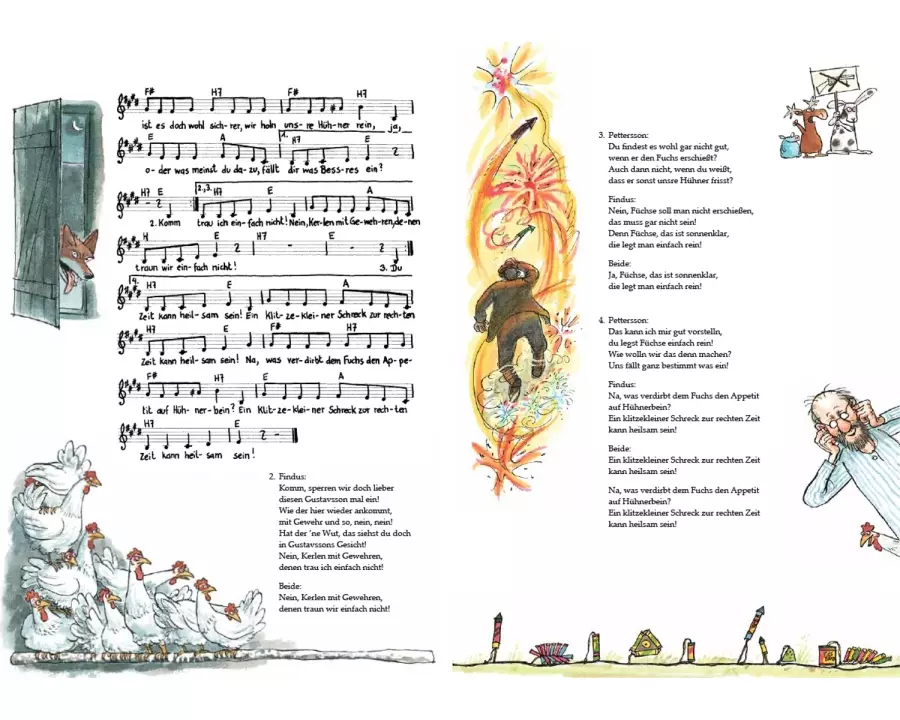 F# H7 F# H7
ist es doch wohl sich-rer, wir holn uns-re Hüh-ner rein, ja,
E A 1. H7 E
o-der was meinst du da-zu, fällt dir was Bess-res ein?
H7 E 2.,3. H7 E A
2. Komm trau ich ein-fach nicht! Nein, Ker-len mit Ge-weh-ren, de-nen
H E H7 E
traun wir ein-fach nicht! 3. Du
4. H7 E A
Zeit kann heil-sam sein! Ein Klit-ze-klei-ner Schreck zur rech-ten
H7 E F# H7
Zeit kann heil-sam sein! Na, was ver-dirbt dem Fuchs den Ap-pe-
H7 E A
tit auf Hüh-ner-bein? Ein Klit-ze-klei-ner Schreck zur rech-ten
H7 E
Zeit kann heil-sam sein!
2. Findus:
Komm, sperren wir doch lieber
diesen Gustavsson mal ein!
Wie der hier wieder ankommt,
mit Gewehr und so, nein, nein!
Hat der 'ne Wut, das siehst du doch
in Gustavssons Gesicht!
Nein, Kerlen mit Gewehren,
denen trau ich einfach nicht!
Beide:
Nein, Kerlen mit Gewehren,
denen traun wir einfach nicht!
3. Pettersson:
Du findest es wohl gar nicht gut,
wenn er den Fuchs erschießt?
Auch dann nicht, wenn du weißt,
dass er sonst unsre Hühner frisst?
Findus:
Nein, Füchse soll man nicht erschießen,
das muss gar nicht sein!
Denn Füchse, das ist sonnenklar,
die legt man einfach rein!
Beide:
Ja, Füchse, das ist sonnenklar,
die legt man einfach rein!
4. Pettersson:
Das kann ich mir gut vorstelln,
du legst Füchse einfach rein!
Wie wolln wir das denn machen?
Uns fällt ganz bestimmt was ein!
Findus:
Na, was verdirbt dem Fuchs den Appetit
auf Hühnerbein?
Ein klitzekleiner Schreck zur rechten Zeit
kann heilsam sein!
Beide:
Ein klitzekleiner Schreck zur rechten Zeit
kann heilsam sein!
Na, was verdirbt dem Fuchs den Appetit
auf Hühnerbein?
Ein klitzekleiner Schreck zur rechten Zeit
kann heilsam sein!